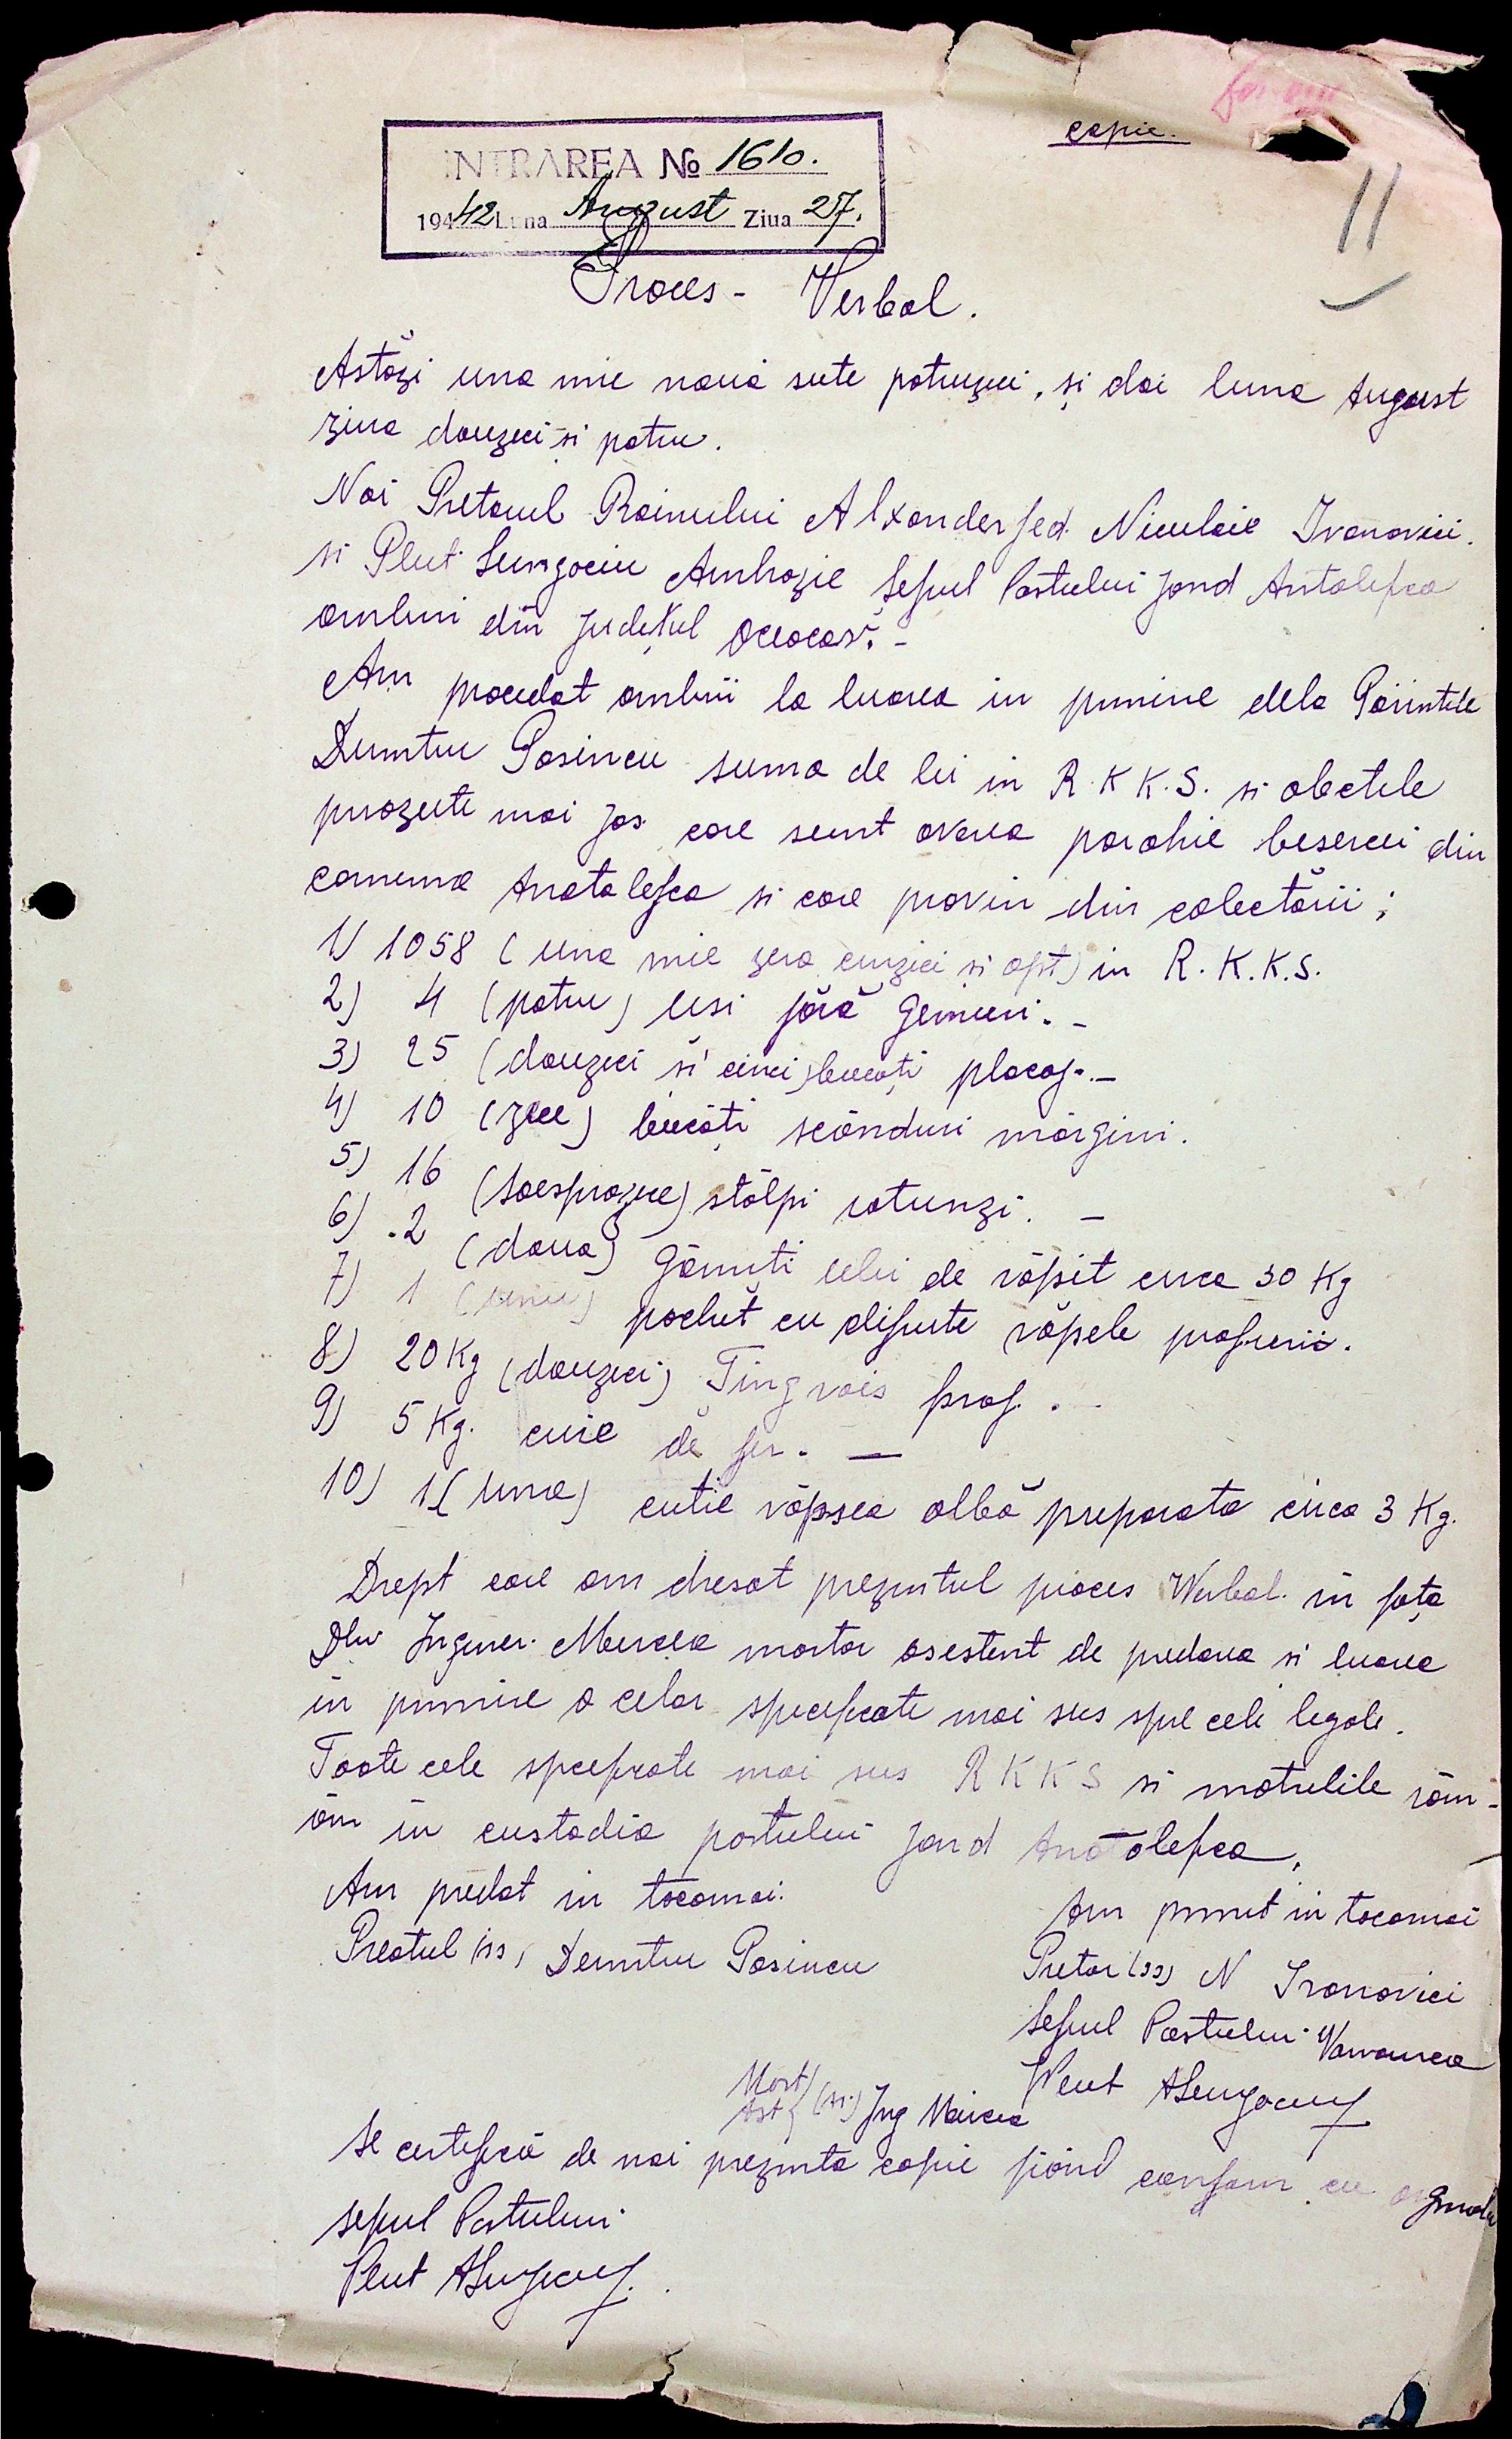 copie.
11
INTRAREA № 1610.
1942 Luna August Ziua 27.
Proces - Verbal.
Astăzi una mie nouă sute patruzeci, și doi luna August
ziua douzeci si patru.
Noi Pretorul Raionului Alxanderfed. Niculaie Ivanovici.
si Plut. Lungociu Ambrozie Șeful Postului Jand Antalefca
ambii din Județul Oceacov. -
Am procedat ambii la luarea in primire dela Părintele
Dumitru Pasincu suma de lei in R.K.K.S. si obectele
prvazute mai jos care sunt averea parohie besercei din
comuna Anatalefca si care provin din colectării;
1) 1058 (una mie zero cinzici si opt) in R.K.K.S.
2) 4 (patru) usi fără gemuri. -
3) 25 (douzeci si cinci) bucați placaj. -
4) 10 (zece) bucăți scânduri mărgini.
5) 16 (șaesprazece) stălpi rotunzi. -
6) 2 (doua) Gămiti ulei de văpsit circa 30 Kg
7) 1 (unu) pachet cu diferite văpsele prafurii.
8) 20 Kg (douzeci) Tingvais praf. -
9) 5 Kg. cuie de fer. -
10) 1 (una) cutie văpsea albă preparata circa 3 Kg.
Drept care am dresat prezentul proces Werbal. in fața
Dlui Inginer. Mircea martor asestent de predarea si luarea
in primire a celor specificate mai sus spre cele legale.
Toate cele specificate mai sus RKKS si matrelile răm-
ăn in custodia postului Jand Anatolefca,
Am predat in tocamai.
Preotul (ss) Dumitru Pasincu
Am primit in tocamai
Pretor (ss) N Ivanovici
Șeful Postului
Plut ALungociu
Mart
Ast (ss) Ing Mircea
Se certifică de noi prezenta copie fiind conform cu orginalu
Șeful Postului
Plut ALungociu